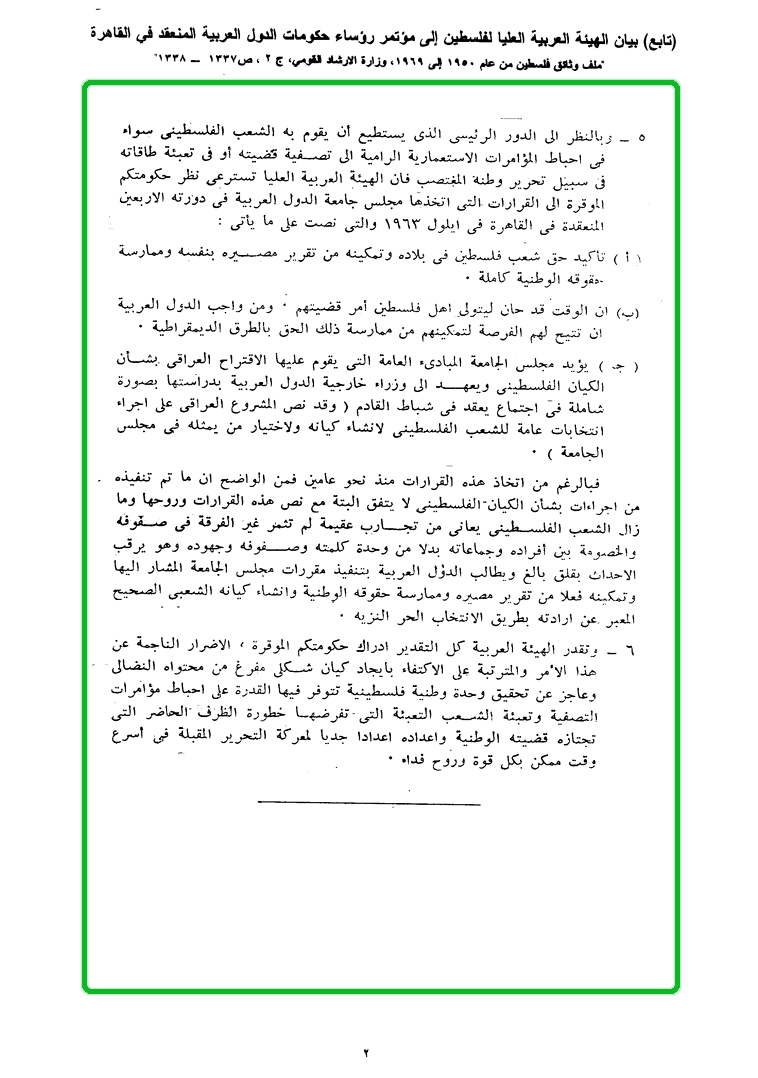 (تابع) بيان الهيئة العربية العليا لفلسطين إلى مؤتمر رؤساء حكومات الدول العربية المنعقد في القاهرة
"ملف وثائق فلسطين من عام ١٩٥٠ إلى ١٩٦٩، وزارة الارشاد القومي، ج ٢ ، ص١٣٣٧ ــ ١٣٣٨"
٥ ــ وبالنظر الى الدور الرئيسى الذى يستطيع أن يقوم به الشعب الفلسطينى سواء
فى احباط المؤامرات الاستعمارية الرامية الى تصفية قضيته أو فى تعبئة طاقاته
فى سبيل تحرير وطنه المغتصب فان الهيئة العربية العليا تسترعى نظر حكومتكم
الموقرة الى القرارات التى اتخذها مجلس جامعة الدول العربية فى دورته الاربعين
المنعقدة فى القاهرة فى ايلول ١٩٦٣ والتى نصت على ما يأتى :
( أ ) تأكيد حق شعب فلسطين فى بلاده وتمكينه من تقرير مصيره بنفسه وممارسة
حقوقه الوطنية كاملة ٠
(ب) ان الوقت قد حان ليتولى اهل فلسطين أمر قضيتهم ٠ ومن واجب الدول العربية
ان تتيح لهم الفرصة لتمكينهم من ممارسة ذلك الحق بالطرق الديمقراطية ٠
( جـ ) يؤيد مجلس الجامعة المبادىء العامة التى يقوم عليها الاقتراح العراقى بشأن
الكيان الفلسطينى ويعهد الى وزراء خارجية الدول العربية بدراستها بصورة
شاملة فى اجتماع يعقد فى شباط القادم ( وقد نص المشروع العراقى على اجراء
انتخابات عامة للشعب الفلسطينى لانشاء كيانه ولاختيار من يمثله فى مجلس
الجامعة ) ٠
فبالرغم من اتخاذ هذه القرارات منذ نحو عامين فمن الواضح ان ما تم تنفيذه
من اجراءات بشأن الكيان الفلسطينى لا يتفق البتة مع نص هذه القرارات وروحها وما
زال الشعب الفلسطينى يعانى من تجارب عقيمة لم تثمر غير الفرقة فى صفوفه
والخصومة بين أفراده وجماعاته بدلا من وحدة كلمته وصفوفه وجهوده وهو يرقب
الاحداث بقلق بالغ ويطالب الدول العربية بتنفيذ مقررات مجلس الجامعة المشار اليها
وتمكينه فعلا من تقرير مصيره وممارسة حقوقه الوطنية وانشاء كيانه الشعبى الصحيح
المعبر عن ارادته بطريق الانتخاب الحر النزيه ٠
٦ ــ وتقدر الهيئة العربية كل التقدير ادراك حكومتكم الموقرة ، الاضرار الناجمة عن
هذا الأمر والمترتبة على الاكتفاء بايجاد كيان شكلى مفرغ من محتواه النضالى
وعاجز عن تحقيق وحدة وطنية فلسطينية تتوفر فيها القدرة على احباط مؤامرات
التصفية وتعبئة الشعب التعبئة التى تفرضها خطورة الظرف الحاضر التى
تجتازه قضيته الوطنية واعداده اعدادا جديا لمعركة التحرير المقبلة فى أسرع
وقت ممكن بكل قوة وروح فداء ٠
٢